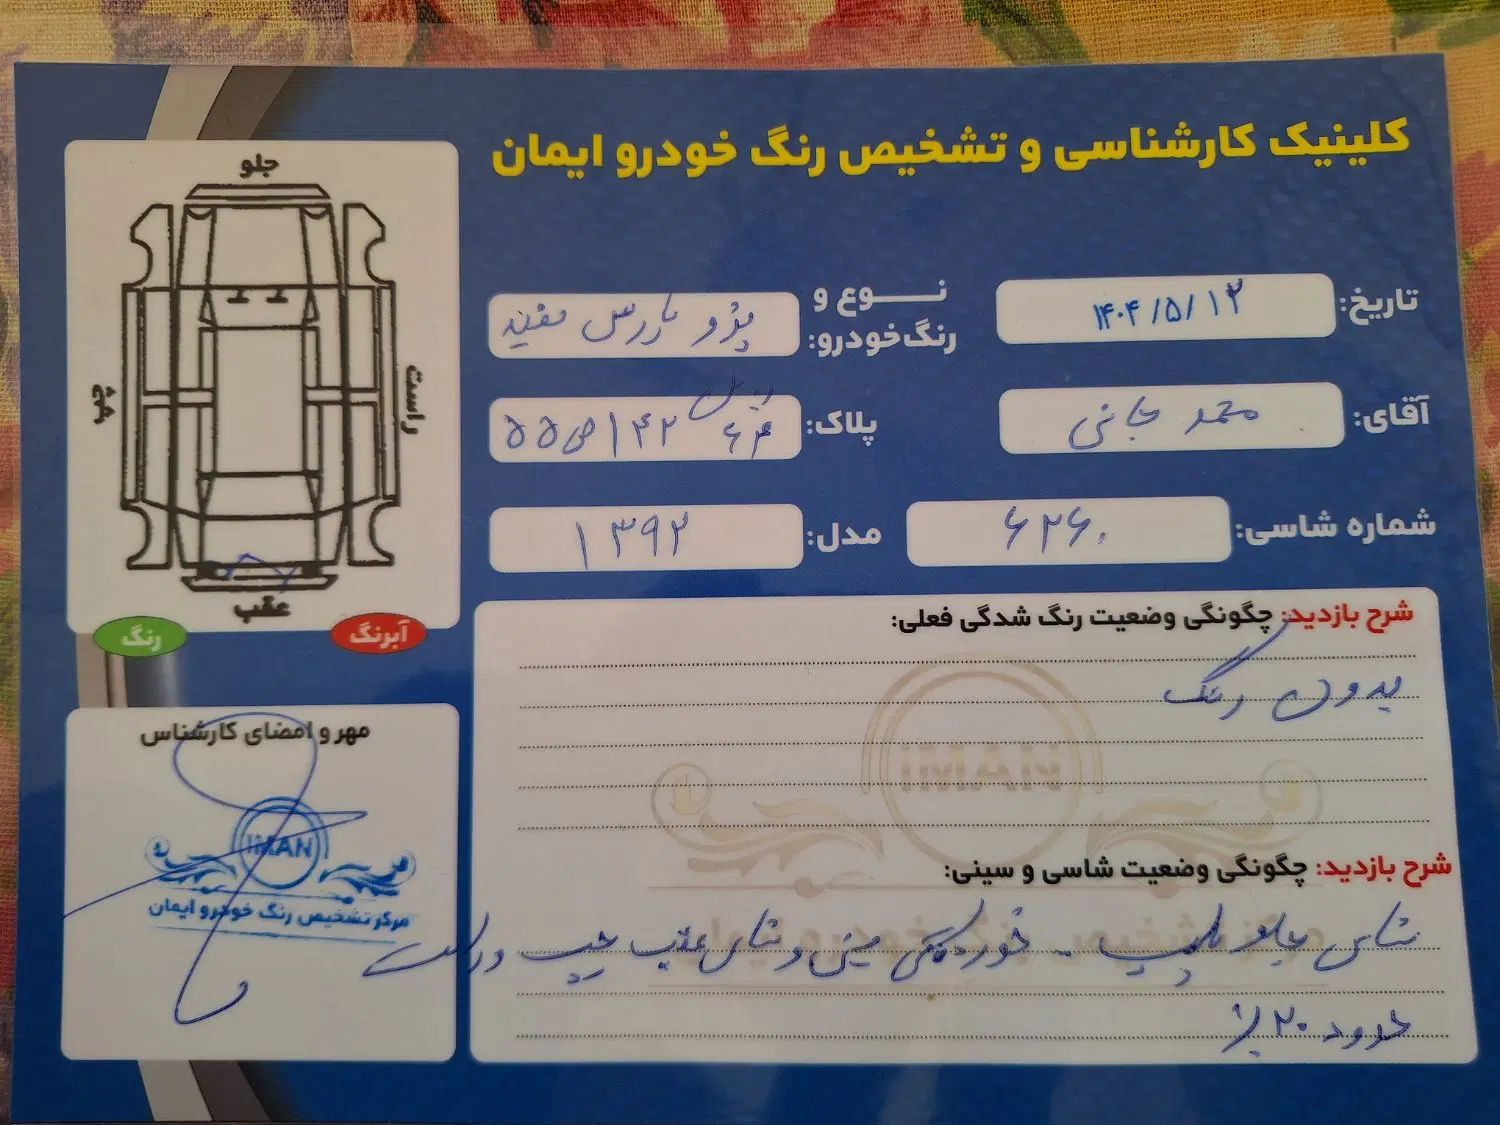 کلینیک کارشناسی و تشخیص رنگ خودرو ایمان
تاریخ: ۱۴۰۴/۵/۱۲
نوع و رنگ‌خودرو: پژو پارس سفید
آقای: محمد جانی
پلاک: ۵۵ص۱۴۲ ۶۴
شماره شاسی: ۶۲۶۰
مدل: ۱۳۹۲
جلو
راست
چپ
عقب
رنگ
آبرنگ
شرح بازدید: چگونگی وضعیت رنگ شدگی فعلی:
بدون رنگ
شرح بازدید: چگونگی وضعیت شاسی و سینی:
شاسی جلو پلمپ - خوردگی سینی و شاسی عقب چپ و راست
حدود ۲۰٪
مهر و امضای کارشناس
IMAN
مرکز تشخیص رنگ خودرو ایمان